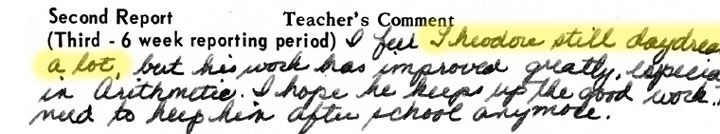 Second Report Teacher's Comment
(Third - 6 week reporting period) I feel Theodore still daydrea
a lot, but his work has improved greatly, especia
in Arithmetic. I hope he keeps up the good work..
need to keep him after school anymore.